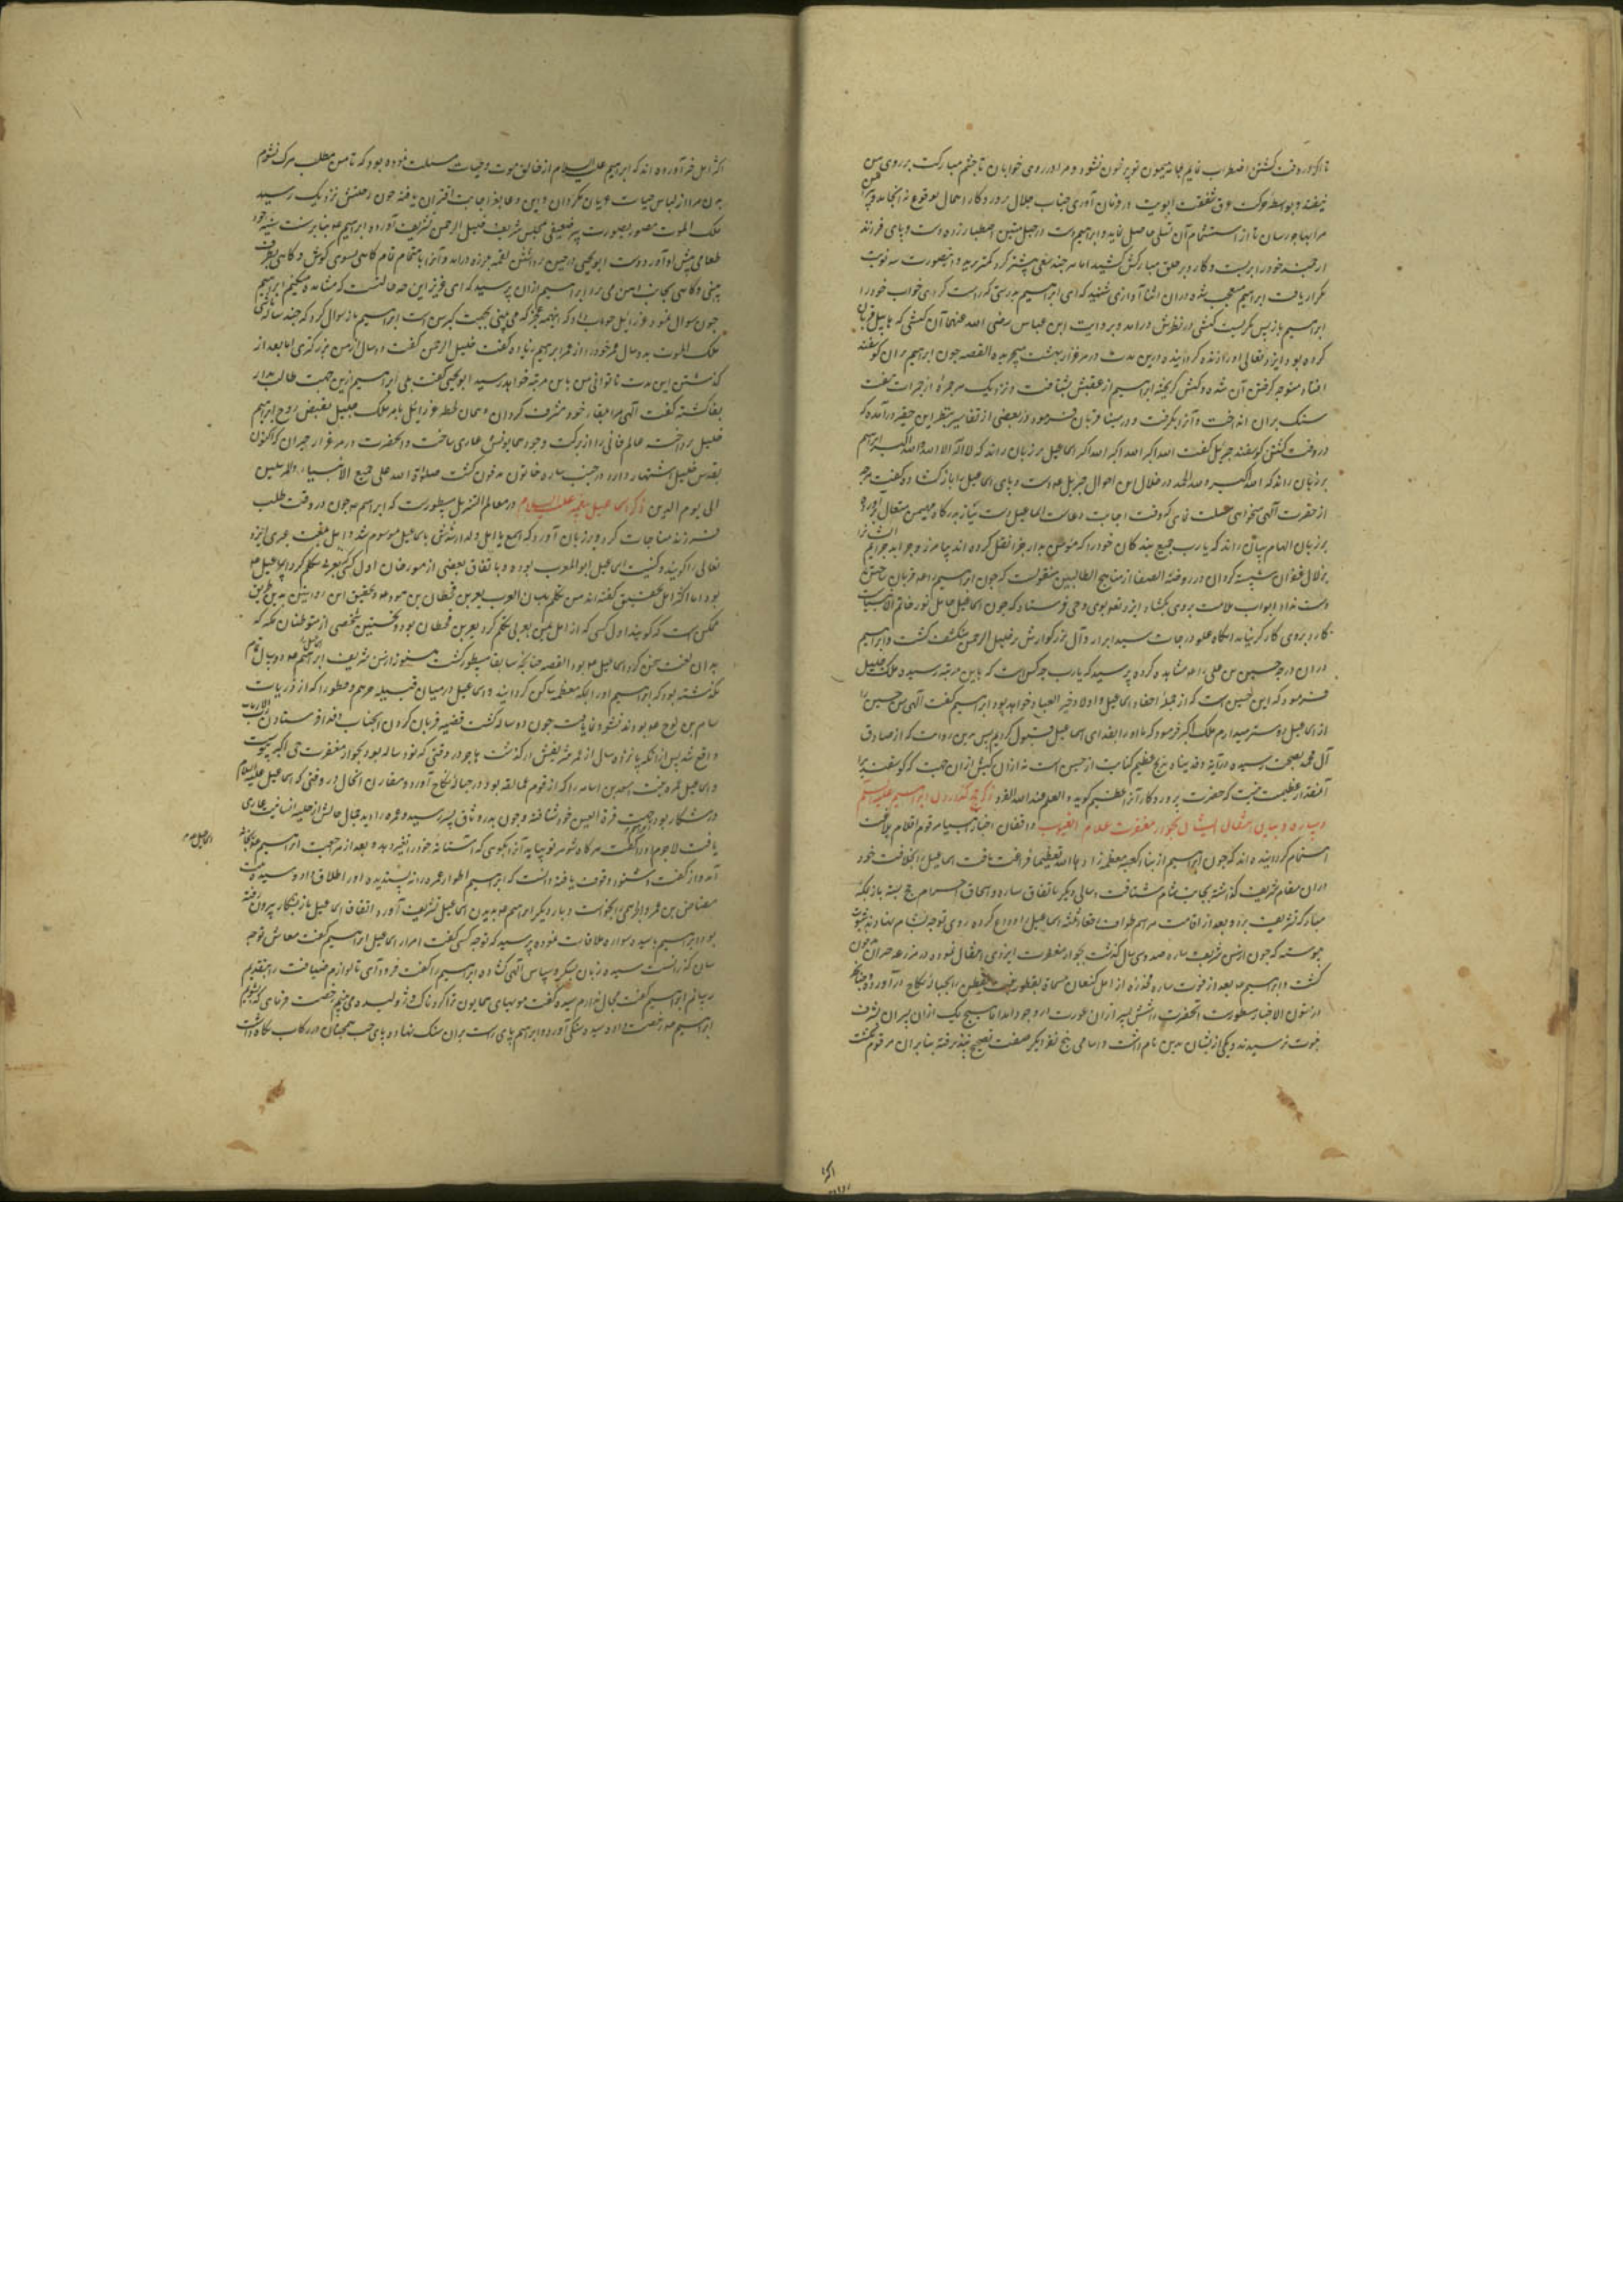 تا اگر در وقت کشتن اضطراب نمایم جامه همیون تو پر خون نشود و مرا در روی خوابان تا چشم مبارکت بر روی من
نیفتد و بواسطه حرکت عرق شفقت ابوت در فرمان آوری جناب جلال پروردگار اهمال بوقوع نه انجامد و پیراهن
مرا بهاجر رسان تا از استشمام آن تسلی حاصل نماید و ابراهیم دست در حبل متین اصطبار زده دست و پای فرزند
ارجمند خود را بربست و کارد بر حلق مبارکش کشید اما هر چند سعی بیشتر کرد کمتر برید و این صورت سه نوبت
تکرار یافت ابراهیم متعجب شده در آن اثنا آوازی شنید که ای ابراهیم بدرستی که راست کردی خواب خود را
ابراهیم باز پس نگریست کبشی در نظرش درآمد و بروایت ابن عباس رضی الله عنهما آن کبشی که هابیل قربان
کرده بود ایزد تعالی او را زنده گردانیده درین مدت در مرغزار بهشت میچریده القصه چون ابراهیم بر آن گوسفند
افتاد متوجه گرفتن آن شده و کبش گریخته ابراهیم از عقبش بشتافت و نزدیک هر جمره از جمرات هفت
سنک بر آن انداخت و آنرا بگرفت و در منا قربان فرمود و در بعضی از تفاسیر بنظر این حقیر درآمده که
در وقت کشتن گوسفند جبرئیل گفت الله اکبر الله اکبر الله اکبر اسماعیل بر زبان راند که لا اله الا الله والله اکبر ابراهیم
بر زبان راند که الله اکبر ولله الحمد در خلال این احوال جبرئیل عم دست و پای اسماعیل را باز گشاد و گفت هر چه
از حضرت الهی میخواهی مسئلت نمای که وقت اجابت دعاست اسماعیل دست نیاز بدرگاه مهیمن متعال برآورد و
بر زبان الهام بیان راند که یارب جمیع بندگان خود را که مؤمن بدار جزا نقل کرده اند بیامرز و جراید جرایم ایشان را
بزلال غفران شسته گردان در روضة الصفا از مناهج الطالبین منقولست که چون ابراهیم را عم قربان
دست نداد ابواب ملامت بروی بگشاد ایزد تعالی بوی وحی فرستاد که چون اسماعیل حامل نور خاتم انبیاست
کارد بروی کارگر نیامد آنگاه علو درجات سید ابرار و آل بزرگوارش بر خلیل الرحمن منکشف گشت و ابراهیم
در آن درجه حسین بن علی را عم مشاهده کرده پرسید که یارب چه کس است که باین مرتبه رسید و ملک جلیل
فرمود که این حسین است که از جمله احفاد اسماعیل و اولاد خیر العباد خواهد بود ابراهیم گفت الهی من حسین را
از اسماعیل دوستر میدارم ملک اکبر فرمود که ما او را بفدای اسماعیل قبول کردیم پس برین روایت که از صادق
آل محمد بصحت رسیده در آیه و فدیناه بذبح عظیم کنایت از حسین است نه از آن کبش از آن جهت که گوسفند را
آنقدر عظمت نیست که حضرت پروردگار آنرا عظیم گوید والعلم عند الله الفرد ذکر حج گذاردن ابراهیم علیه السلام
و ساره و بیان انتقال ایشان بجوار مغفرت علام الغیوب واقفان اخبار انبیا مرقوم اقلام بلاغت
انتظام گردانیده اند که چون ابراهیم از بناء کعبه معظمه زادها الله تعظیما فراغت یافت اسماعیل را بخلافت خود
در آن مقام شریف گذاشته بجانب شام شتافت و سالی دیگر باتفاق ساره و اسحاق احرام حج بسته باز بمکه
مبارکه تشریف برد و بعد از اقامت مراسم طواف خانه کعبه اسماعیل را وداع کرده روی توجه بشام نهاد و بثبوت
پیوسته که چون از سن شریف ساره صد و سی سال گذشت بجوار مغفرت ایزدی انتقال نموده در مزرعه حبرون مدفون
گشت و ابراهیم عم بعد از فوت ساره مخدره از اهل کنعان مسماة بقطوره بنت یقطن را بحباله نکاح درآورد و چنانکه
در متون الاخبار مسطورست آنحضرت را شش پسر از آن عورت در وجود آمد اما هیچ یک از آن پسران بشرف
نبوت نرسیدند و یکی از ایشان مدین نام داشت و اسامی پنج نفر دیگر صفت تصحیح نپذیرفته بنابر آن مرقوم نگشت
اکثر
اکثر اهل خبر آورده اند که ابراهیم علیه السلام از خالق موت و حیات مسئلت نموده بود که تا من مطلب مرگ نشوم
بدن مرا از لباس حیات عریان نگردان و این دعا بعز اجابت اقتران یافته چون رحلتش نزدیک رسید
ملک الموت مصور بصورت پیر ضعیفی بمجلس شریف خلیل الرحمن تشریف آورده ابراهیم عم بنابر سنت سنیه خود
طعامی پیش او آورد و دست ابویحیی در حین برداشتن لقمه بلرزه درآمد و آنرا باستحکام تمام گاهی بسوی گوش و گاهی بطرف
بینی و گاهی بجانب دهن می برد ابراهیم از آن پرسید که ای عزیز این چه حالتست که مشاهده میکنیم ابراهیم
چون سوال نمود عزرائیل جواب داد که اینهمه عجز که می بینی بجهت کبر سن است ابراهیم باز سوال کرد که چند ساله
ملک الموت بدو سال عمر خود را از عمر ابراهیم زیاده گفت خلیل الرحمن گفت دو سال از من بزرگتری اما بعد از
گذشتن این مدت ناتوانی من باین مرتبه خواهد رسید ابویحیی گفت بلی ابراهیم ازین جهت طالب دار
بقا گشته گفت الهی مرا بلقاء خود مشرف گردان و همان لحظه عزرائیل بامر ملک جلیل بقبض روح ابراهیم
خلیل پرداخت عالم فانی را از برکت وجود همایونش عاری ساخت و آنحضرت در مرغزار حبرون که اکنون
بقدس خلیل اشتهار دارد در جنب ساره خاتون مدفون گشت صلوة الله علی جمیع الانبیاء والمرسلین
الی یوم الدین ذکر اسماعیل علیه السلام در معالم التنزیل مسطورست که ابراهیم عم چون در وقت طلب
فرزند مناجات کردی بر زبان آورد که اسمع یا ایل ولد ارشدش باسماعیل موسوم شد و ایل بلغت عبری ایزد
تعالی را گویند و کنیت اسماعیل ابوالعرب بوده و باتفاق بعضی از مورخان اول کسی که بعربی تکلم کرد اسماعیل عم
بود اما اکثر اهل تحقیق گفته اند من تکلم بلسان العرب یعرب بن قحطان بن هود عم و تحقیق این روایتین بدین طریق
ممکن است که گویند اول کسی که از اهل یمن بعربی تکلم کرد یعرب بن قحطان بود و نخستین شخصی از متوطنان مکه که
بدان لغت سخن کرد اسماعیل عم بود القصه چنانکه سابقا مسطور گشت هنوز از سن شریف اسماعیل عم دو سال تمام
نگذشته بود که ابراهیم او را بمکه معظمه ساکن گردانید و اسماعیل در میان قبیله جرهم و قطورا که از ذریات
سام بن نوح عم بودند نشو و نما یافت چون دو ساله گشت قضیه قربان کردن آنجناب و فدا فرستادن
واقع شد پس از آنکه پانزده سال از عمر شریفش درگذشت هاجر در وقتی که نود ساله بود بجوار مغفرت حی اکبر پیوست
و اسماعیل عمره بنت اسعد بن اسامه را که از قوم عمالقه بود در حباله نکاح آورد و مقارن آنحال در وقتی که اسماعیل علیه السلام
در شکار بود بجهت قرة العین خود شتافته و چون بدر وثاق پسر رسید و عمره را دید جمال حالش از حلیه انسانیت عاری
یافت لاجرم او را گفت هرگاه شوهر تو بیاید آنرا بگوی که آستانه خود را تغییر بدهد و بعد از مراجعت ابراهیم عم بخانه
اسماعیل عم
آمد و از گفت و شنود وقوف یافته دانست که ابراهیم اطوار عمره را نه پسندیده او را طلاق داد و سیده بنت
مضاض بن عمرو الجرهمی را بخواست و بار دیگر ابراهیم عم بدیدن اسماعیل تشریف آورد اتفاقا اسماعیل باز بشکار بیرون رفته
بود ابراهیم با سیده سواره ملاقات نموده پرسید که توجه کسی گفت امرأة اسماعیل ابراهیم گفت معاش توجه
سان گذرانست سیده زبان بشکر و سپاس الهی گشاده ابراهیم را گفت فرود آی تا لوازم ضیافت را بتقدیم
رسانم ابراهیم گفت مجال ندارم سیده گفت مویهای همایون ترا گردناک و ژولیده می بینم رخصت فرمای که بشویم
ابراهیم عم رخصت داد سیده سنگی آورد و ابراهیم پای راست بر آن سنک نهاد و پای چپ همچنان در رکاب نگاه داشت